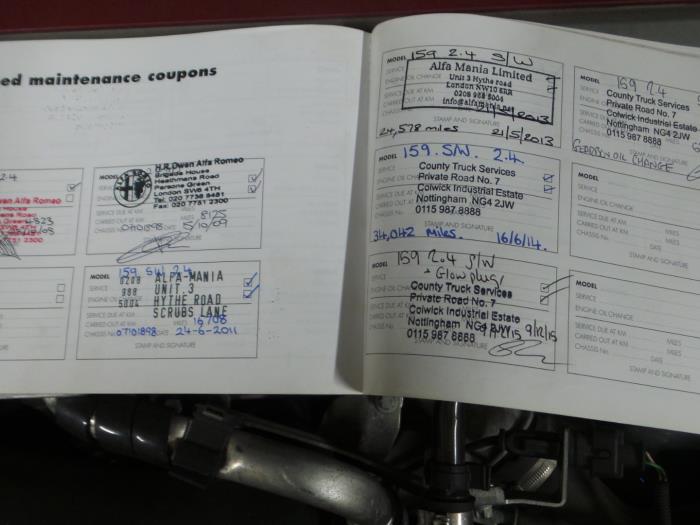 ed maintenance coupons
2.4
Owen Alfa Romeo
House
Road
Green
6TH
2300
MODEL
H.R.Owen Alfa Romeo
Brigade House
Heathmans Road
Parsons Green
London SW6 4TH
Tel. 020 7736 8481
Fax 020 7751 2300
SERVICE DUE AT KM
CARRIED OUT AT KM MILES 8125
CHASSIS No. 07101898 5/10/09
STAMP AND SIGNATURE
MODEL 159 SW 2.4
0208 ALFA-MANIA
988 UNIT 3
5004 HYTHE ROAD
SCRUBS LANE
SERVICE
ENGINE OIL CHANGE
SERVICE DUE AT KM
CARRIED OUT AT KM MILES
CHASSIS No. 07101898 DATE 24-6-2011
STAMP AND SIGNATURE
MODEL 159 2.4 S/W
Alfa Mania Limited
Unit 3 Hythe road
London NW10 6RR
0208 988 5004
SERVICE
ENGINE OIL CHANGE
SERVICE DUE AT KM
CARRIED OUT AT KM
CHASSIS No.
STAMP AND SIGNATURE
24,578 miles 21/5/2013
MODEL 159. S/W. 2.4
County Truck Services
Private Road No. 7
Colwick Industrial Estate
Nottingham NG4 2JW
0115 987 8888
SERVICE
CHASSIS No.
STAMP AND SIGNATURE
34,042 Miles. 16/6/14.
MODEL 159 2.4 S/W
+ Glow plugs
County Truck Services
Private Road No. 7
Colwick Industrial Estate
Nottingham NG4 2JW
0115 987 8888
9/12/15
SERVICE
ENGINE OIL CHANGE
SERVICE DUE AT KM
CARRIED OUT AT KM
CHASSIS No.
STAMP AND SIGNATURE
MODEL 159 2.4
County Truck Services
Private Road No. 7
Colwick Industrial Estate
Nottingham NG4 2JW
0115 987 8888
GEARBOX OIL CHANGE
MODEL
SERVICE
ENGINE OIL CHANGE
SERVICE DUE AT KM
CARRIED OUT AT KM MILES
CHASSIS No. DATE
STAMP AND SIGNATURE
MODEL
SERVICE
ENGINE OIL CHANGE
SERVICE DUE AT KM
CARRIED OUT AT KM MILES
CHASSIS No. DATE
STAMP AND SIGNATURE